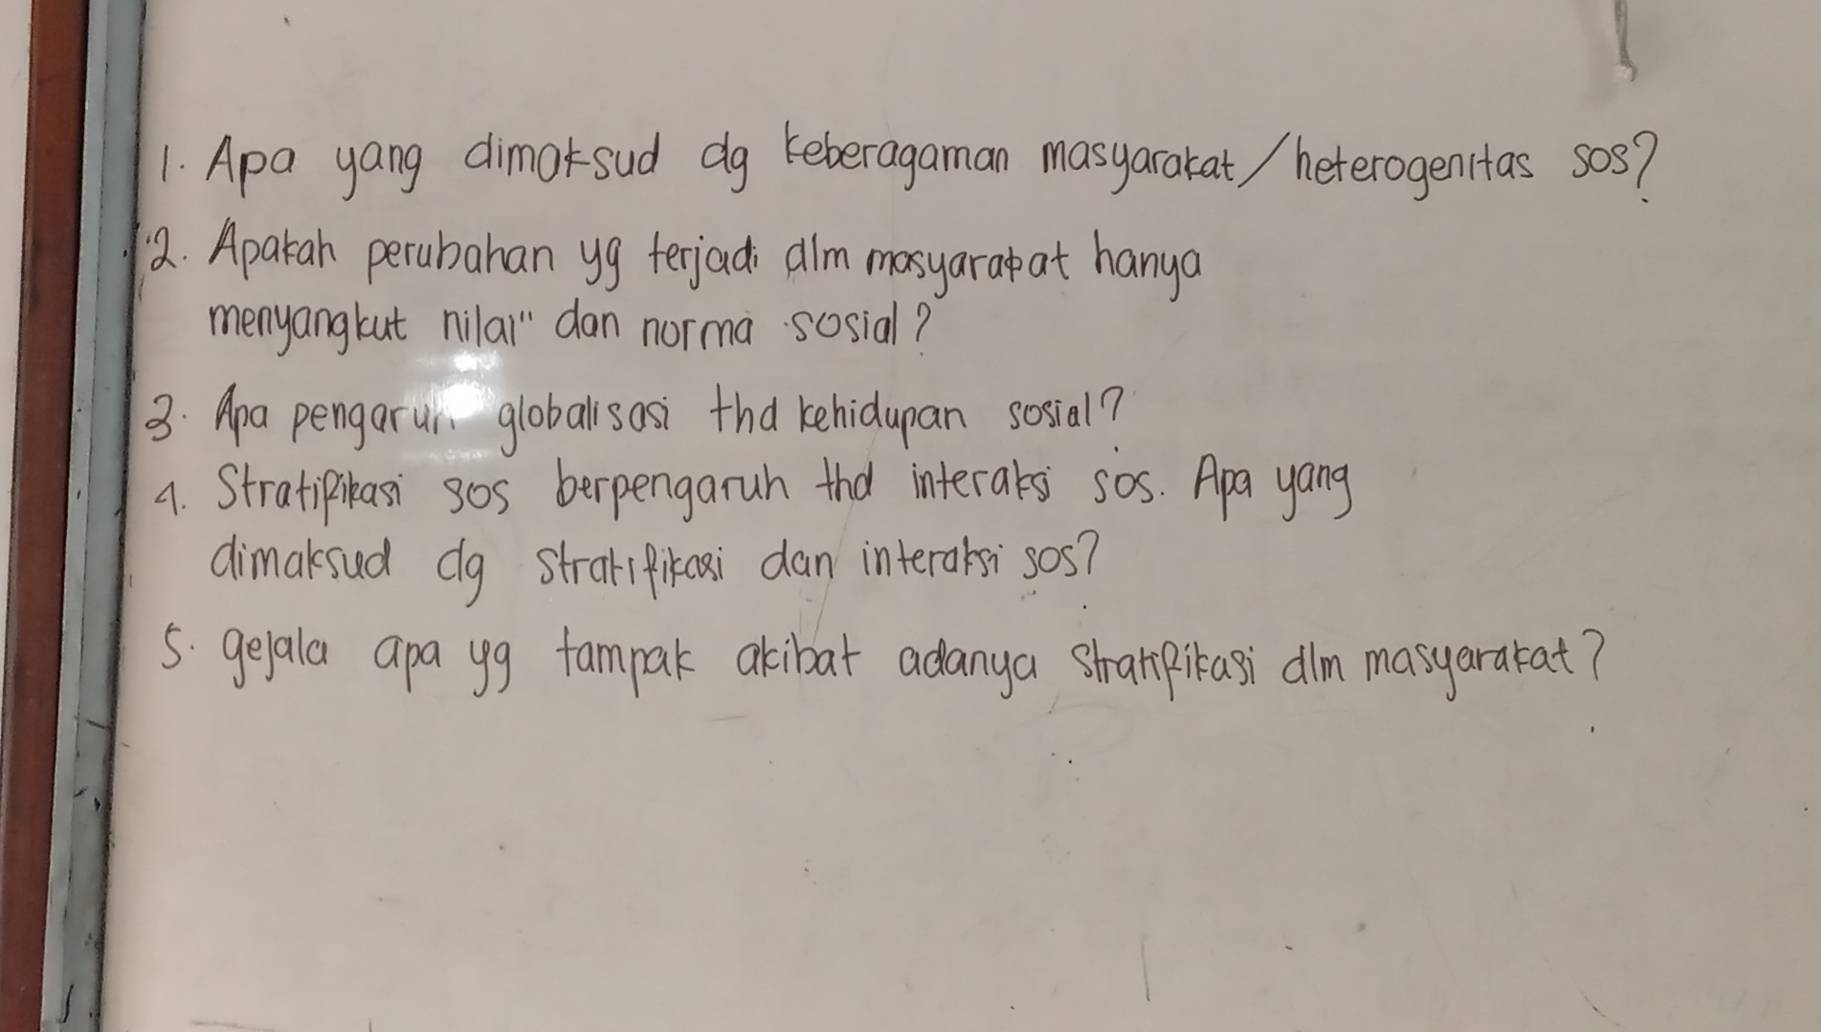 1. Apa yang dimaksud dg keberagaman masyarakat/heterogenitas sos?
2. Apakah perubahan yg terjadi dlm masyarakat hanya
menyangkut nilai" dan norma sosial?
3. Apa pengaruh globalisasi thd kehidupan sosial?
4. Stratifikasi sos berpengaruh thd interaksi sos. Apa yang
dimaksud dg stratifikasi dan interaksi sos?
5. gejala apa yg tampak akibat adanya stratifikasi dlm masyarakat?